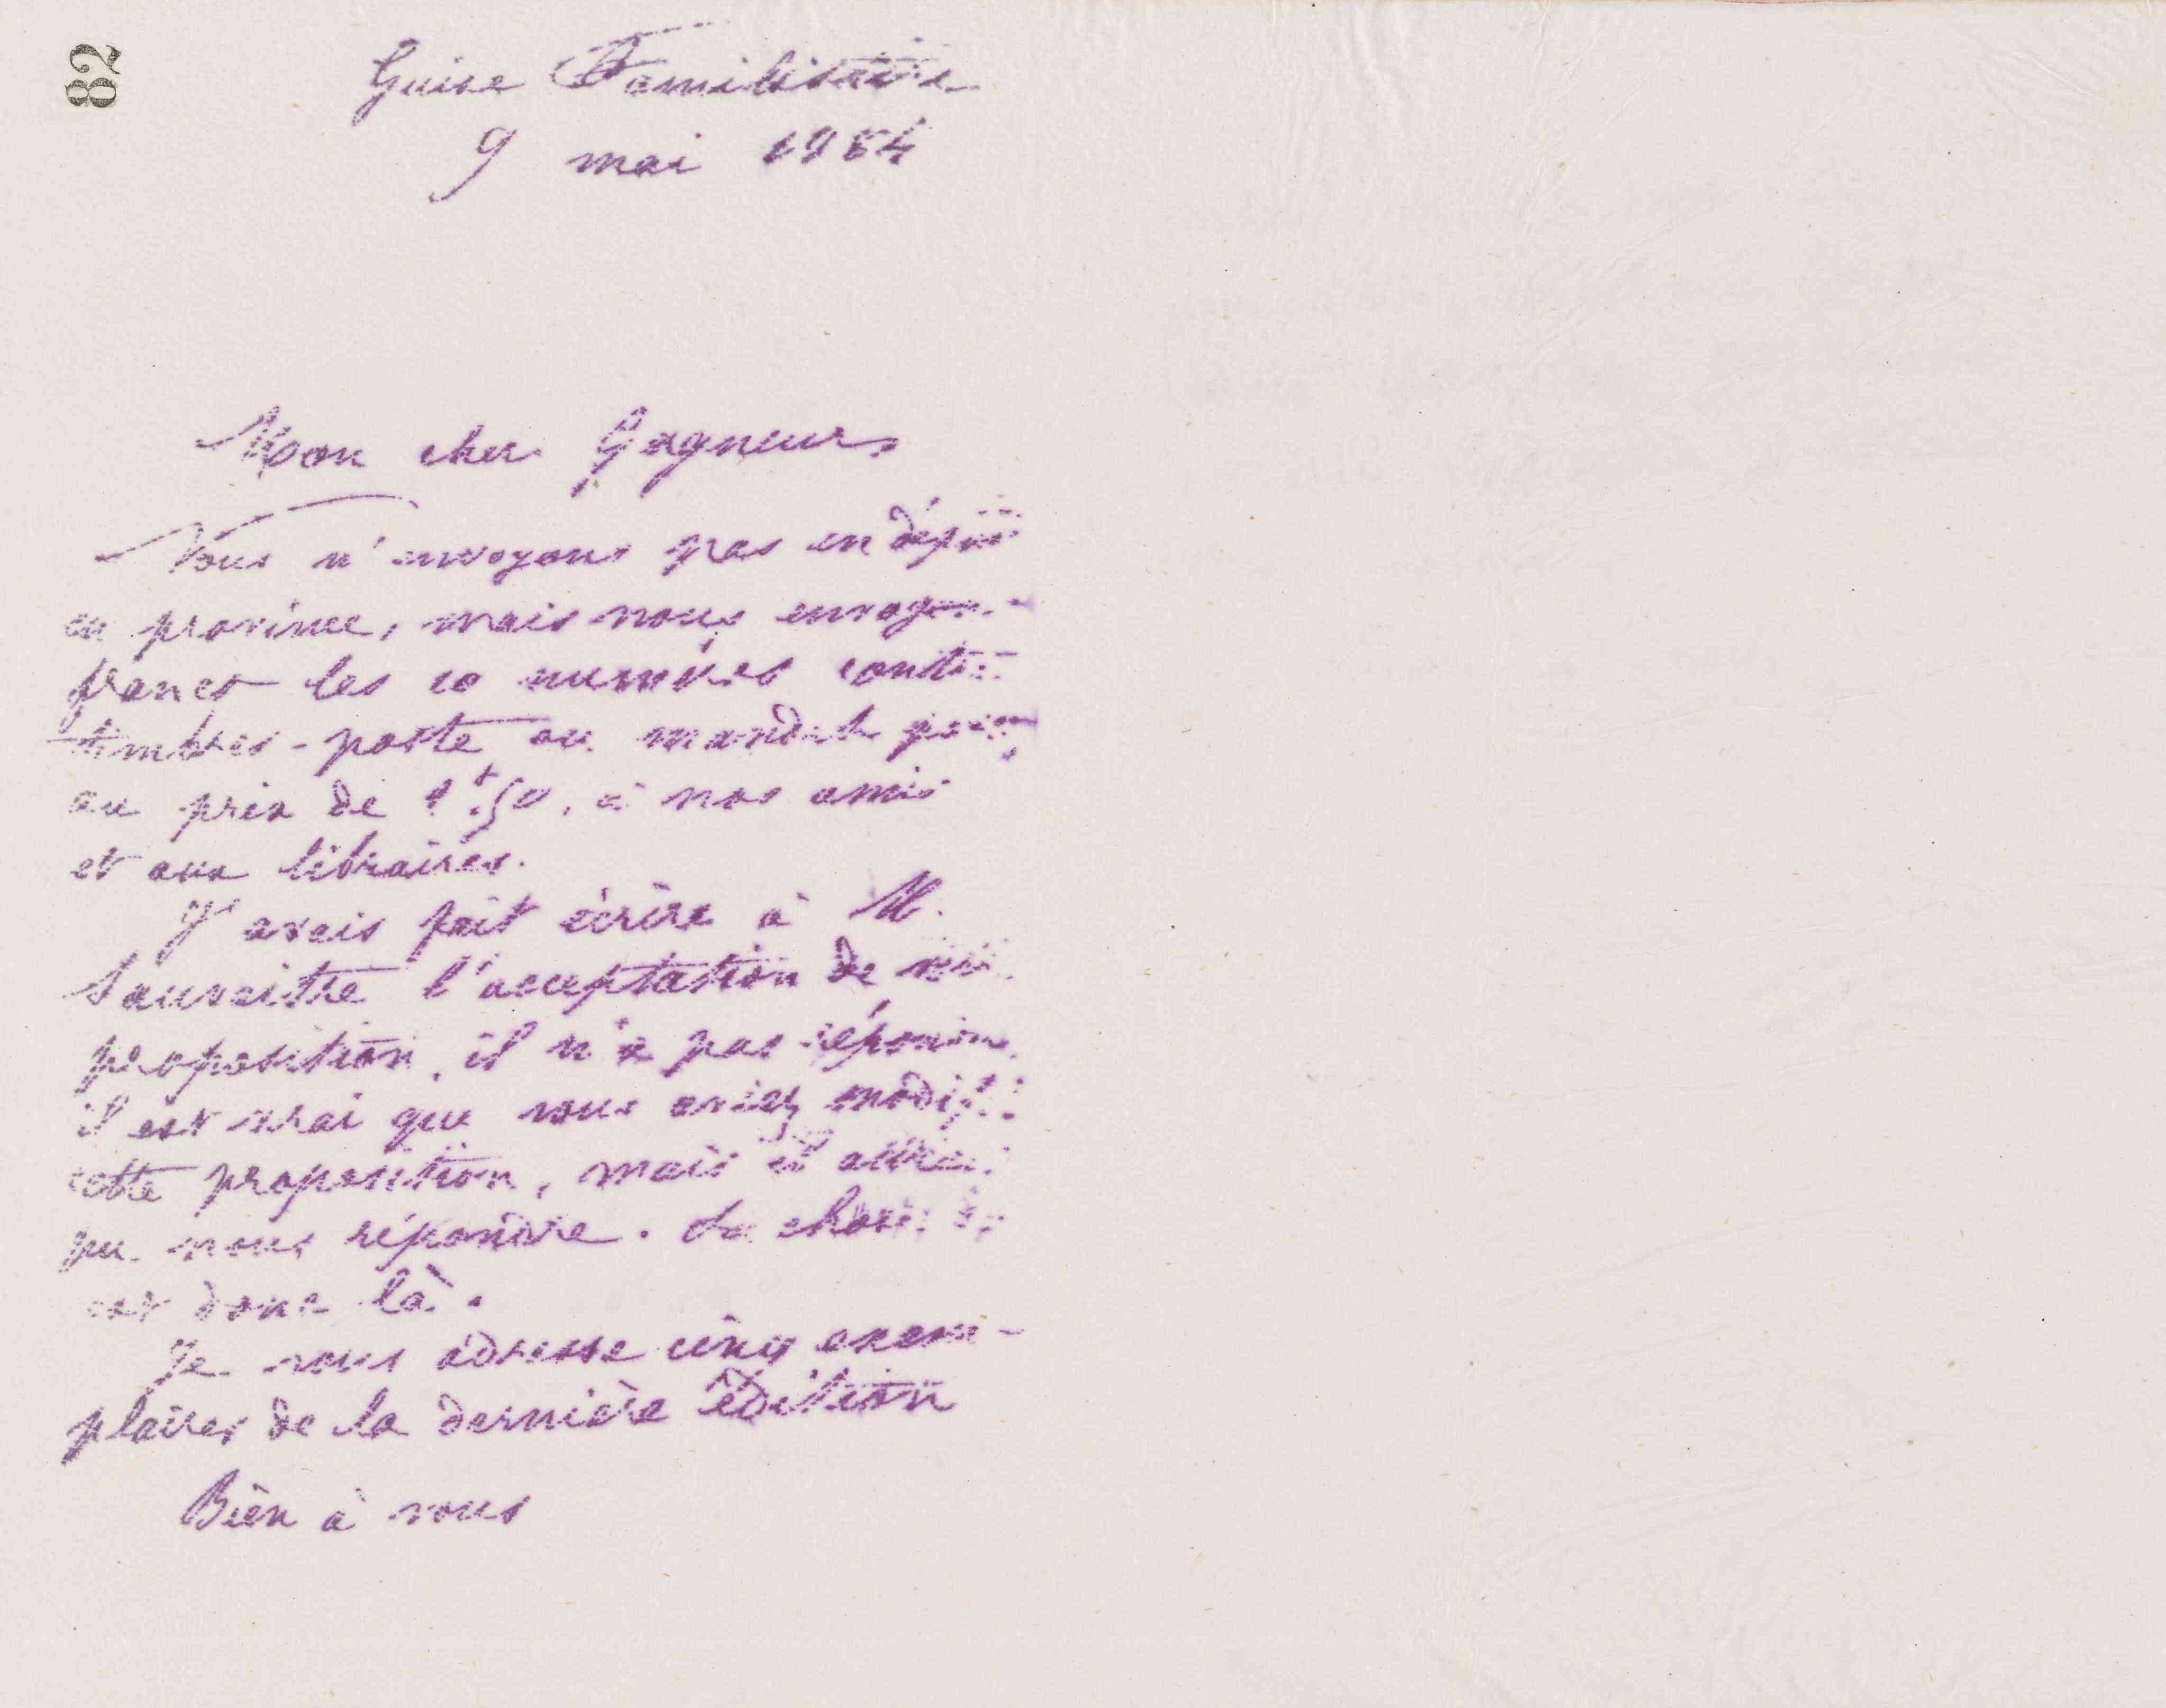 82
Guise Familistère
9 mai 1884
Mon cher Gagneur,
Nous n'envoyons pas en dépôt
en province, mais nous envoyons
franco les 10 numéros contre
timbres-poste ou mandat poste,
au prix de 1f.50, à nos amis
et aux libraires.
J'avais fait écrire à M.
Sauvaitre l'acceptation de
proposition, il n'a pas répondu,
il est vrai que vous aviez modifié
cette proposition, mais il aurait
pu nous répondre. La chose en
est donc là.
Je vous adresse cinq exem-
plaires de la dernière édition
Bien à vous